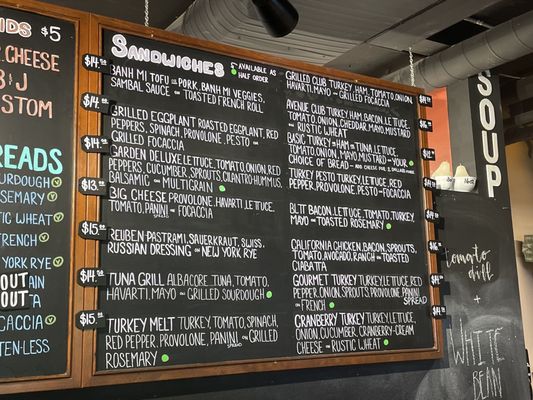 IDS $5
R. CHEESE
B & J
CUSTOM
READS
URDOUGH
SEMARY
STIC WHEAT
FRENCH
YORK RYE
OUT AIN
OUT TA
CACCIA
TEN-LESS
SANDWICHES
AVAILABLE AS HALF ORDER
$14.
BANH MI TOFU OR PORK, BANH MI VEGGIES,
SAMBAL SAUCE ON TOASTED FRENCH ROLL
$14.
GRILLED EGGPLANT ROASTED EGGPLANT, RED
PEPPERS, SPINACH, PROVOLONE, PESTO ON
GRILLED FOCACCIA
$14.
GARDEN DELUXE LETTUCE, TOMATO, ONION, RED
PEPPERS, CUCUMBER, SPROUTS, CILANTRO HUMMUS,
BALSAMIC ON MULTIGRAIN
$13.
BIG CHEESE PROVOLONE, HAVARTI, LETTUCE,
TOMATO, PANINI ON FOCACCIA
$15.
REUBEN PASTRAMI, SAUERKRAUT, SWISS,
RUSSIAN DRESSING ON NEW YORK RYE
$14.
TUNA GRILL ALBACORE TUNA, TOMATO,
HAVARTI, MAYO ON GRILLED SOURDOUGH
$15.
TURKEY MELT TURKEY, TOMATO, SPINACH,
RED PEPPER, PROVOLONE, PANINI SPREAD ON GRILLED
ROSEMARY
GRILLED CLUB TURKEY, HAM, TOMATO, ONION,
HAVARTI, MAYO ON GRILLED FOCACCIA
AVENUE CLUB TURKEY, HAM, BACON, LETTUCE,
TOMATO, ONION, CHEDDAR, MAYO, MUSTARD
ON RUSTIC WHEAT
BASIC TURKEY OR HAM OR TUNA, LETTUCE,
TOMATO, ONION, MAYO, MUSTARD ON YOUR
CHOICE OF BREAD
TURKEY PESTO TURKEY, LETTUCE, RED
PEPPER, PROVOLONE, PESTO ON FOCACCIA
BLTT BACON, LETTUCE, TOMATO, TURKEY,
MAYO ON TOASTED ROSEMARY
CALIFORNIA CHICKEN, BACON, SPROUTS,
TOMATO, AVOCADO, RANCH ON TOASTED
CIABATTA
GOURMET TURKEY TURKEY, LETTUCE, RED
PEPPER, ONION, SPROUTS, PROVOLONE, PANINI SPREAD
ON FRENCH
CRANBERRY TURKEY TURKEY, LETTUCE,
ONION, CUCUMBER, CRANBERRY-CREAM
CHEESE ON RUSTIC WHEAT
SOUP
tomato
dill
+
WHITE
BEAN